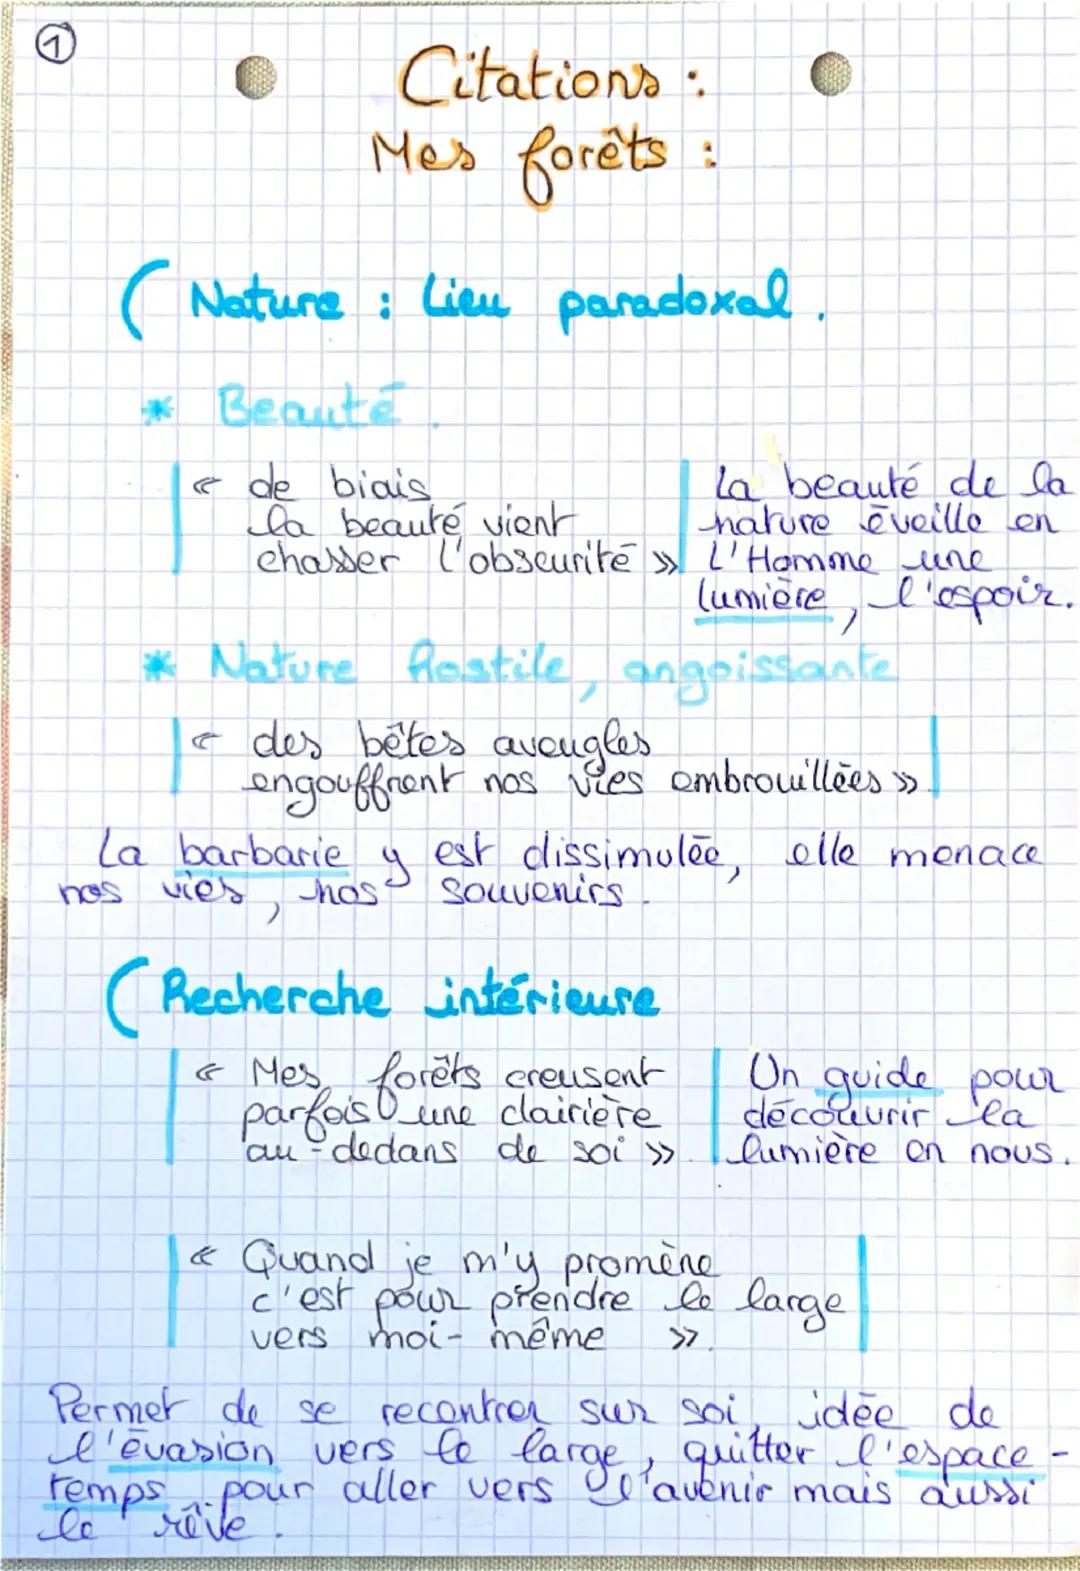 1
Citations :
Mes forêts :
( Nature : Lieu paradoxal.
* Beauté.
« de biais
la beauté vient
chasser l'obscurité »
La beauté de la
nature éveille en
l'Homme une
lumière, l'espoir.
* Nature hostile, angoissante
« des bêtes aveugles
engouffrent nos vies embrouillées ».
La barbarie y est dissimulée, elle menace
nos vies, nos souvenirs.
( Recherche intérieure
« Mes forêts creusent
parfois une clairière
au-dedans de soi ».
Un guide pour
découvrir la
lumière en nous.
« Quand je m'y promène
c'est pour prendre le large
vers moi-même ».
Permet de se recentrer sur soi, idée de
l'évasion vers le large, quitter l'espace-
temps pour aller vers l'avenir mais aussi
le rêve.